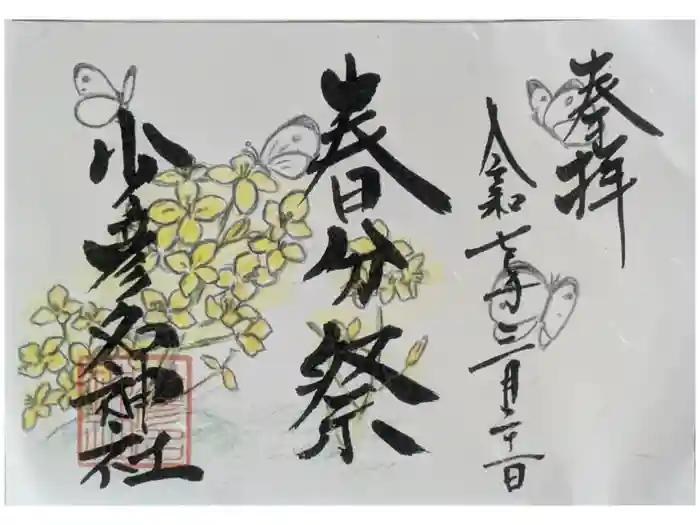 奉拝
令和七年三月二十日
春分祭
少彦名神社